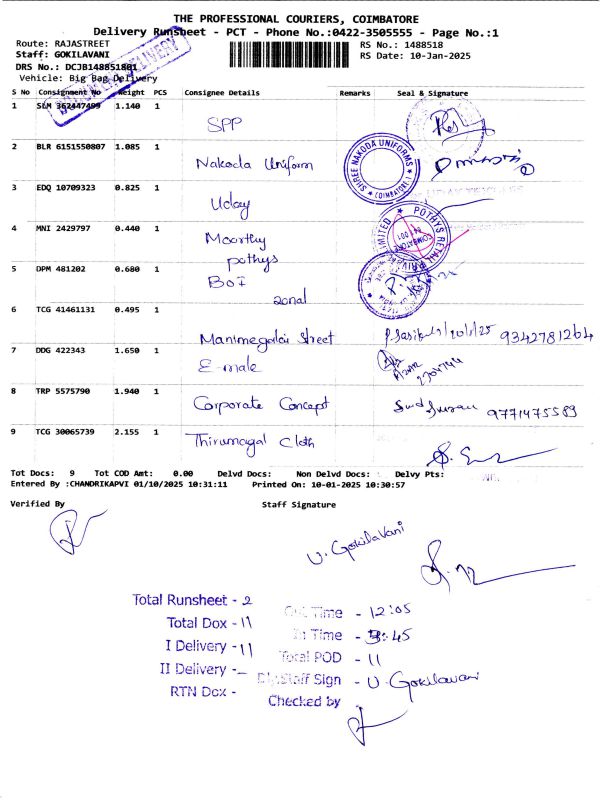 THE PROFESSIONAL COURIERS, COIMBATORE
Delivery Runsheet - PCT - Phone No.:0422-3505555 - Page No.:1
Route: RAJASTREET
RS No.: 1488518
Staff: GOKILAVANI
RS Date: 10-Jan-2025
DRS No.: DCJB148851801
Vehicle: Big Bag Delivery
S No Consignment No Weight PCS Consignee Details Remarks Seal & Signature
1 SLM 362447499 1.140 1
SPP
2 BLR 6151550807 1.085 1
Nakoda Uniform
SHREE NAKODA UNIFORMS
(COIMBATORE)
3 EDQ 10709323 0.825 1
Uday
4 MNI 2429797 0.440 1
Moorthy
pothys
POTHYS RETAIL PRIVATE LIMITED
COIMBATORE
641 001
5 DPM 481202 0.680 1
BOI
zonal
6 TCG 41461131 0.495 1
Manimegalai Street 9342781264
7 DDG 422343 1.650 1
E-male
8 TRP 5575790 1.940 1
Corporate Concept 9771475589
9 TCG 30065739 2.155 1
Thirumagal Cloth
Tot Docs: 9 Tot COD Amt: 0.00 Delvd Docs: Non Delvd Docs: Delvy Pts:
Entered By :CHANDRIKAPVI 01/10/2025 10:31:11 Printed On: 10-01-2025 10:30:57
Verified By Staff Signature
U. Gokilavani
Total Runsheet - 2 Out Time - 12:05
Total Dox - 11 In Time - 3:45
I Delivery - 11 Total POD - 11
II Delivery - - Staff Sign - U. Gokilavani
RTN Dox - Checked by